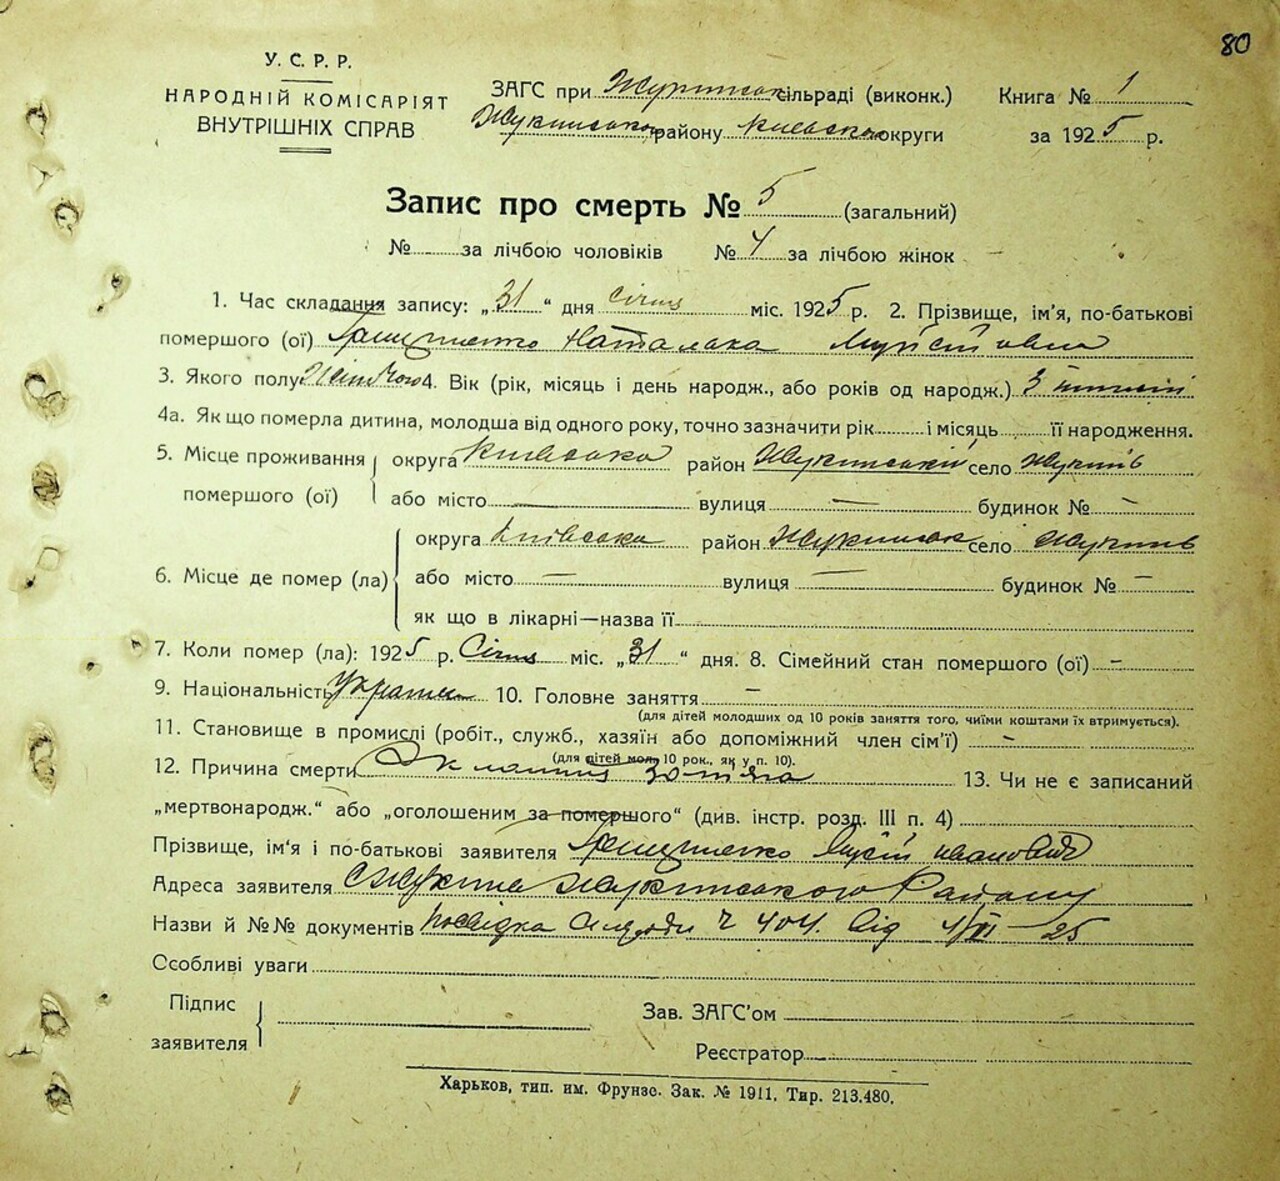 80
У. С. Р. Р.
НАРОДНІЙ КОМІСАРІЯТ
ВНУТРІШНІХ СПРАВ
ЗАГС при сільраді (виконк.) Книга № 1
району округи за 1925 р.
Запис про смерть № 5 (загальний)
№ за лічбою чоловіків № 4 за лічбою жінок
1. Час складання запису: „31“ дня Січня міс. 1925 р. 2. Прізвище, ім'я, по-батькові
помершого (ої) Наталака
3. Якого полу 4. Вік (рік, місяць і день народж., або років од народж.) 3
4а. Як що померла дитина, молодша від одного року, точно зазначити рік і місяць її народження.
5. Місце проживання помершого (ої) округа Київська район Жукинський село Жукинь
або місто — вулиця — будинок № —
6. Місце де помер (ла) округа Київська район Жукинськ село Жукинь
або місто — вулиця — будинок № —
як що в лікарні—назва її
7. Коли помер (ла): 1925 р. Січня міс. „31“ дня. 8. Сімейний стан помершого (ої) —
9. Національність 10. Головне заняття —
(для дітей молодших од 10 років заняття того, чиїми коштами їх втримується).
11. Становище в промислі (робіт., служб., хазяїн або допоміжний член сім'ї) —
(для дітей мол. 10 рок., як у п. 10).
12. Причина смерти 13. Чи не є записаний
„мертвонародж.“ або „оголошеним за помершого“ (див. інстр. розд. III п. 4)
Прізвище, ім'я і по-батькові заявителя Іванович
Адреса заявителя Жукинського Району
Назви й №№ документів Посвідка Сільради Ч 404. Від —25
Особливі уваги
Підпис заявителя
Зав. ЗАГС'ом
Реєстратор
Харьков, тип. им. Фрунзе. Зак. № 1911. Тир. 213.480.